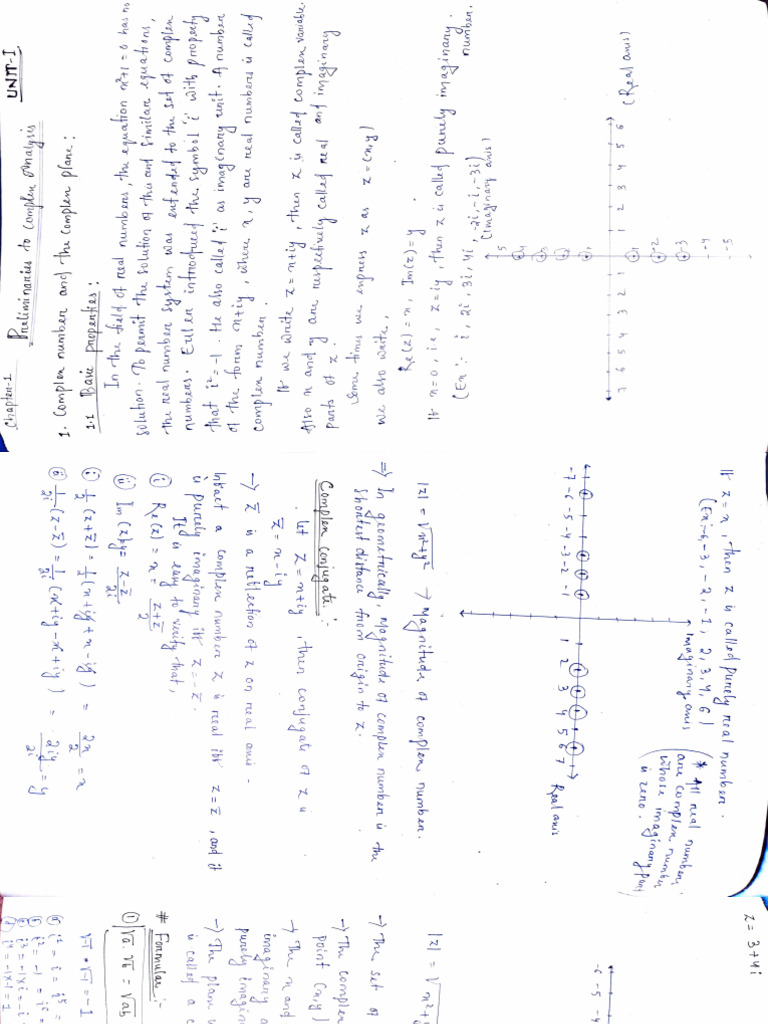 Chapter-1
UNIT-I
Preliminaries to Complex Analysis
1. Complex number and the complex plane:
1.1 Basic properties:
In the field of real numbers, the equation x²+1=0 has no
solution. To permit the solution of this and similar equations,
the real number system was extended to the set of complex
numbers. Euler introduced the symbol 'i' with property
that i²=-1. He also called 'i' as imaginary unit. A number
of the form x+iy, where x, y are real numbers is called
complex number.
If we write z=x+iy, then z is called complex variable.
Also x and y are respectively called real and imaginary
parts of z.
Some times we express z as z=(x,y)
we also write,
Re(z)=x, Im(z)=y.
If x=0, i.e, z=iy, then z is called purely imaginary
number.
(Ex: i, 2i, 3i, 4i, -2i, -i, -3i)
(Imaginary axis)
5 4 3 2 1 -1 -2 -3 -4 -5
7 6 5 4 3 2 1 1 2 3 4 5 6
(Real axis)
If z=x, then z is called purely real number.
(Ex:-6,-3,-2,-1, 2,3,4,6)
* All real number
are complex number
whose imaginary part
is zero.
Imaginary axis
-7 -6 -5 -4 -3 -2 -1 1 2 3 4 5 6 7
Real axis
|z| = √x²+y² → Magnitude of complex number.
⇒ In geometrically, Magnitude of complex number is the
shortest distance from origin to z.
Complex conjugate:-
Let z=x+iy, then conjugate of z is
z̅=x-iy
→ z̅ is a reflection of z on real axis.
Infact a complex number z is real iff z=z̅, and it
is purely imaginary iff z=-z̅.
It is easy to verify that,
(i) Re(z) = x = z+z̅/2
(ii) Im(z)=y= z-z̅/2i
(i) 1/2 (z+z̅) = 1/2 (x+iy+x-iy) = 2x/2 = x
(ii) 1/2i (z-z̅) = 1/2i (x+iy-x+iy) = 2iy/2i = y
z = 3+4i
-6 -5 -4
|z| = √x²+y
→ The set of
→ The complex
point (x,y)
→ The x and
imaginary a
purely imagin
→ The plane
is called a c
# Formulas:-
(1) √a.√b = √ab
√-1 • √-1 = -1